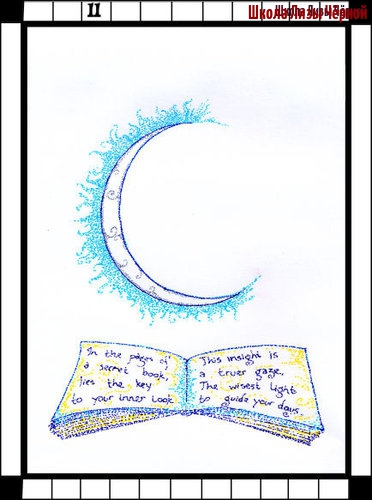 11
Школа Лизы Чёрной
In the pages of
a secret book,
lies the key
to your inner look
This insight is
a truer gaze.
The wisest light
to guide your days.